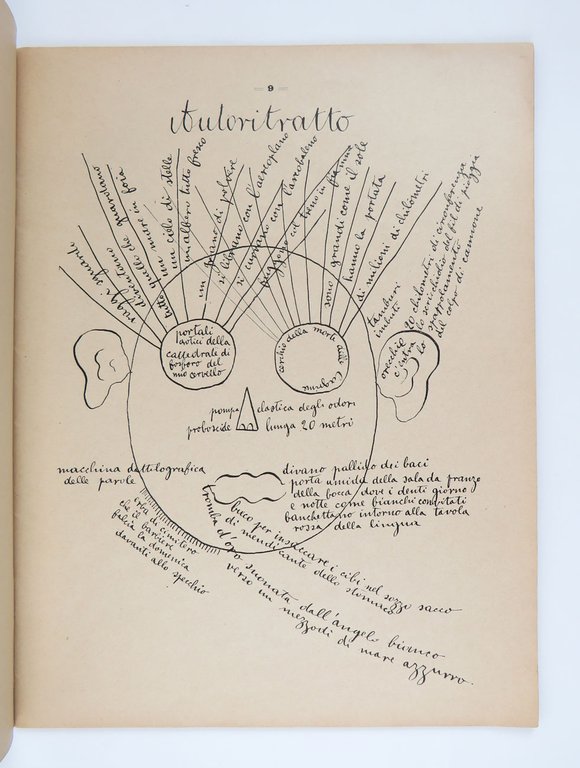 9
Autoritratto
raggi sguardi
diventano
tutto quello che guardano
un mare in fiera
un cielo di stelle
un albero tutto fresco
un grano di polvere
si librano con l'aereoplano
si curvano con l'arcobaleno
fuggono col treno in fiamme
sono grandi come il sole
hanno la portata
di milioni di chilometri
tamburi
imbuti
orecchie 20 chilometri di circonferenza
c'entra lo scricchiolio del fil di pioggia
lo spappolamento
del colpo di cannone
portali
ottici della
cattedrale di
fosforo del
mio cervello
cerchio della morte delle lagrime
pompa elastica degli odori
proboscide lunga 20 metri
macchina dattilografica
delle parole
divano pallido dei baci
porta umida della sala da pranzo
della bocca dove i denti giorno
e notte come bianchi convitati
banchettano intorno alla tavola
rossa della lingua
buco per insaccare i cibi nel sozzo sacco
di mendicante dello stomaco
tromba d'oro suonata dall'angelo bianco
verso un mezzodì di mare azzurro
erba di cimitero
che il barbiere
falcia la domenica
davanti allo specchio